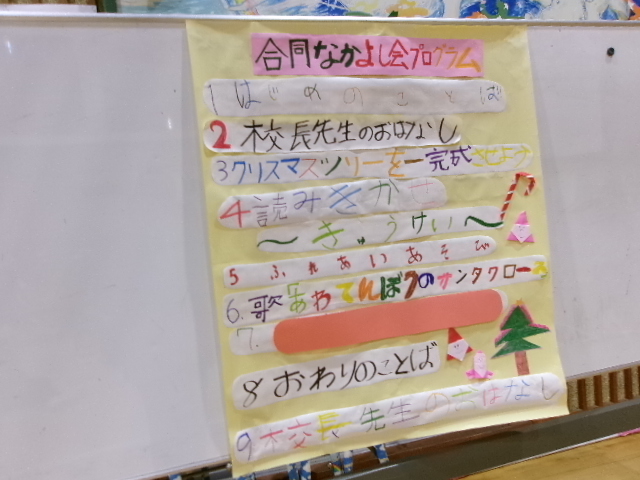 合同なかよし会プログラム
1 はじめのことば
2 校長先生のおはなし
3 クリスマスツリーを完成させよう
4 読みきかせ
〜きゅうけい〜
5 ふれあいあそび
6. 歌 あわてんぼうのサンタクロース
7.
8 おわりのことば
9 校長先生のおはなし